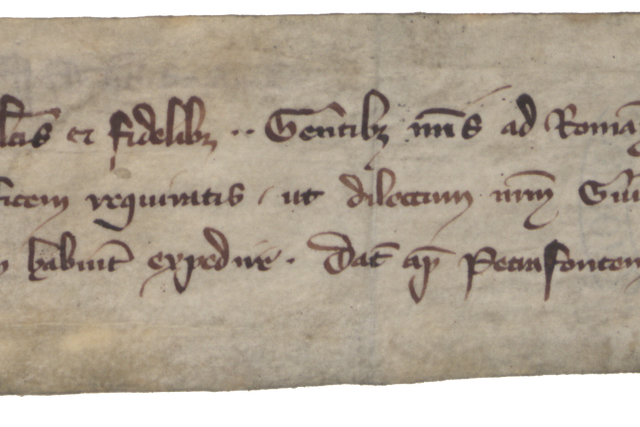 lc̄is et fidelibȝ ·· Gen̄tibȝ nr̄is ad Romā
ficem requiratis / ut dilectum nrm̄ Gui
habuint̄ expedire · Dat̄ ap̄ Petrafontem